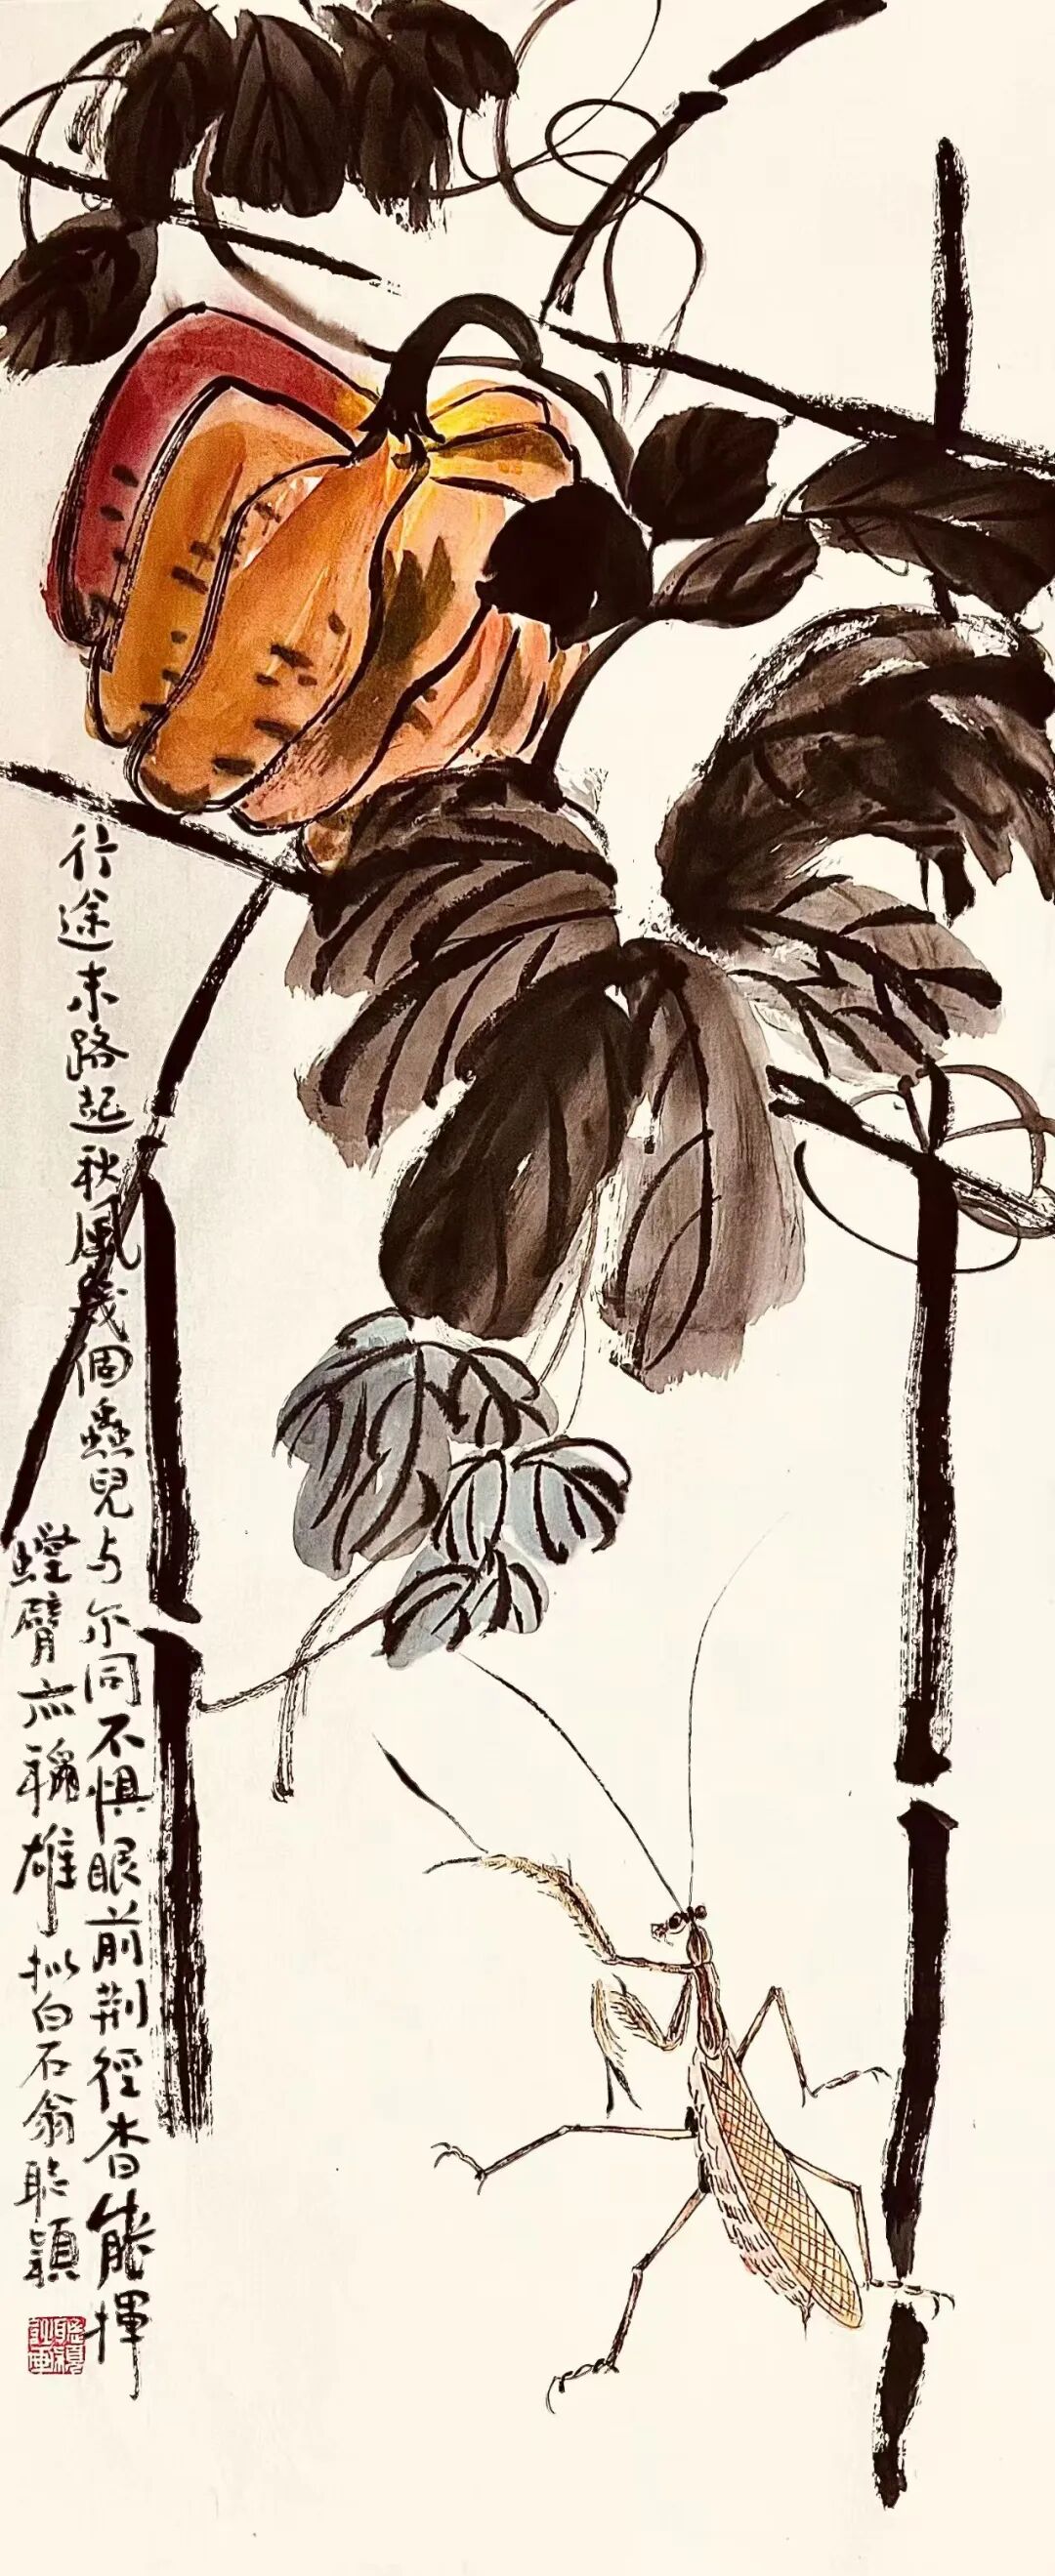 行途末路起秋風幾個蟲兒与尔同不惧眼前荆徑杳能揮
螳臂亦稱雄拟白石翁穎